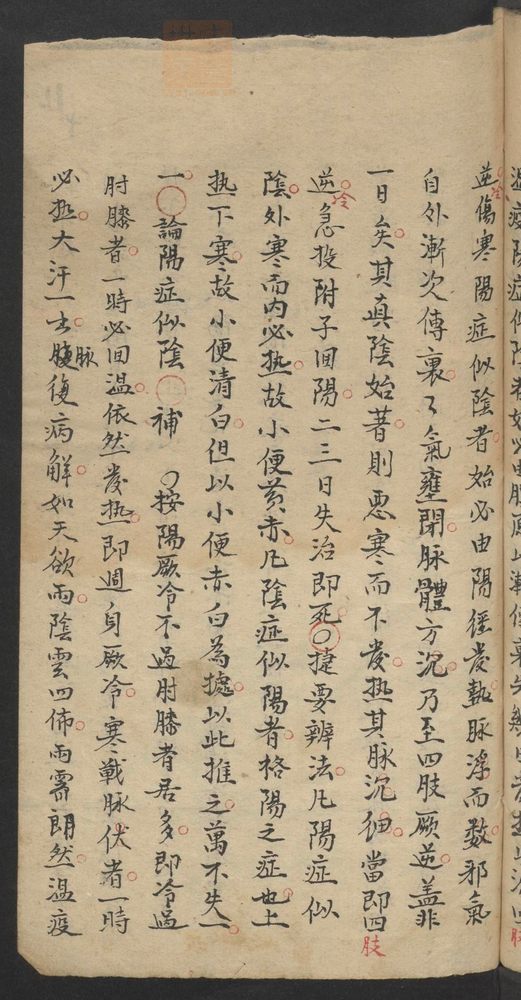 逆冷傷寒陽症似陰者始必由陽經發熱脉浮而数邪氣
自外漸次傳裏了氣壅閉脉體方沉乃至四肢厥逆盖非
一日矣其真陰始著則惡寒而不發热其脉沉細當即四肢
逆冷急投附子回陽二三日失治即死〇捷要辨法凡陽症似
陰外寒而内必热故小便黄赤凡陰症似陽者格陽之症也上
热下寒故小便清白但以小便赤白為據以此推之萬不失一
一〇論陽症似陰〇補 〇按陽厥冷不過肘膝者居多即冷過
肘膝者一時必回温依然發热即週身厥冷寒戰脉伏者一時
必热大汗一出脉復病解如天欲雨陰雲四佈雨霽朗然温疫